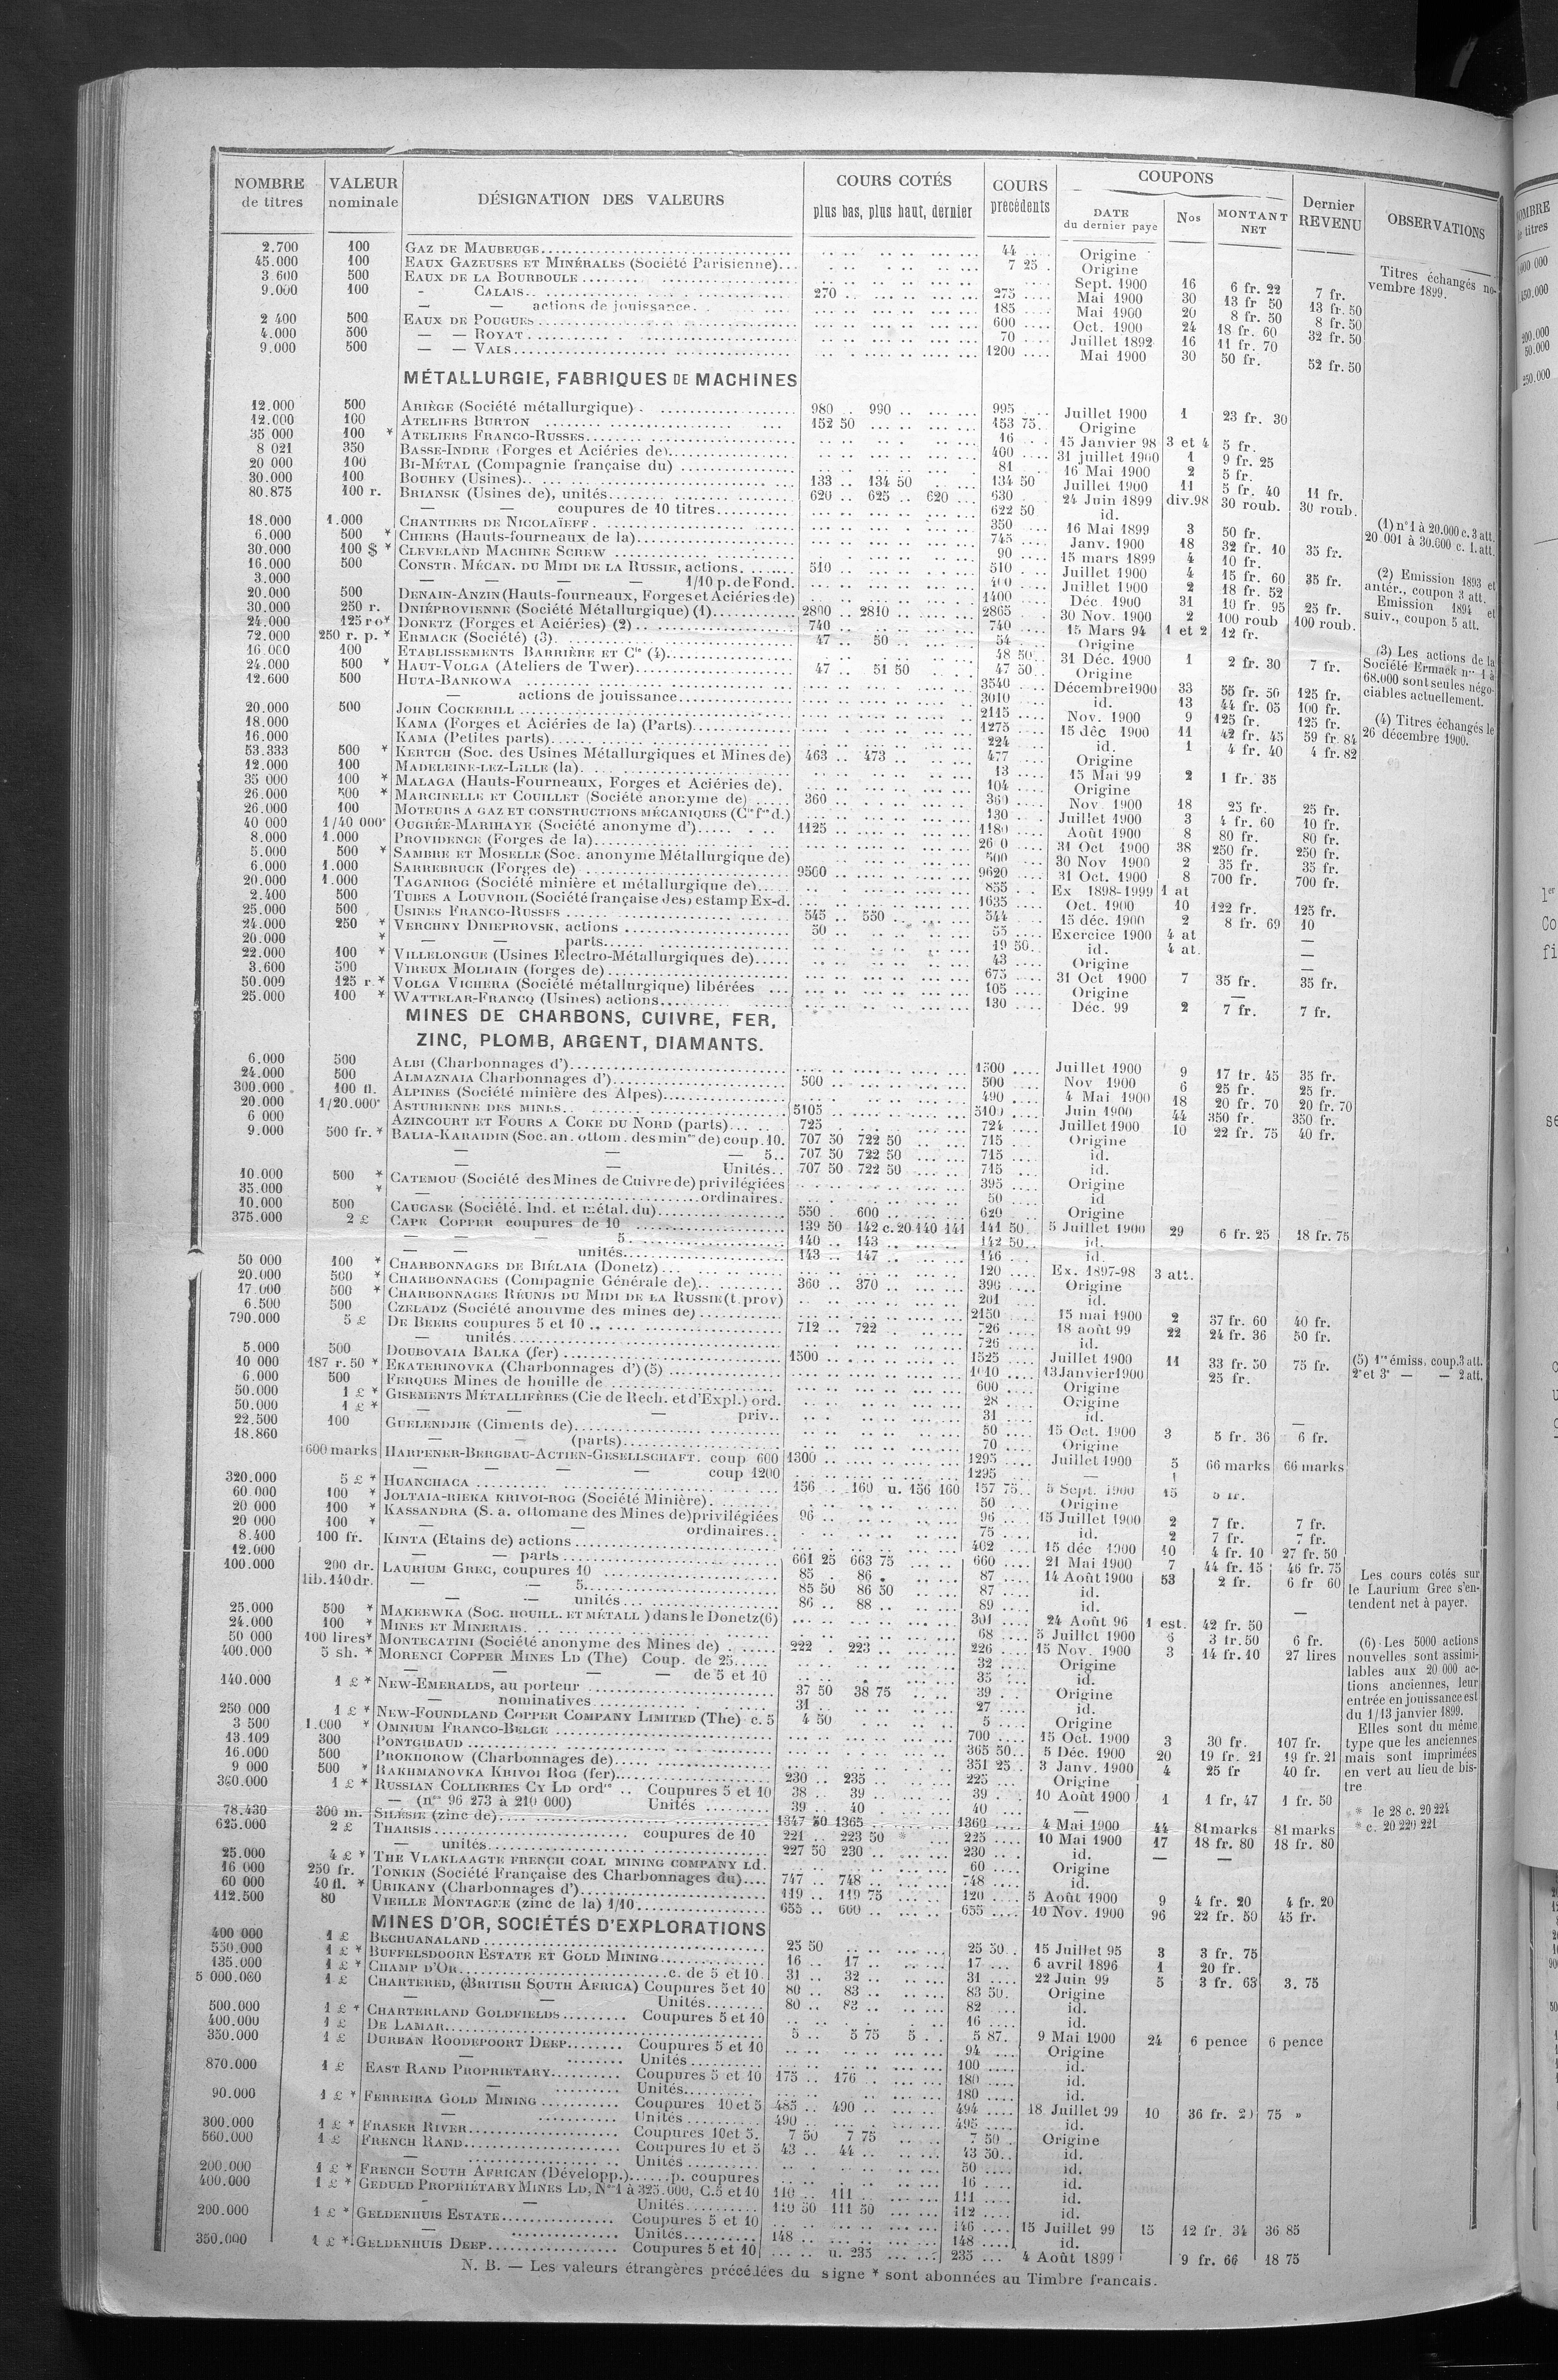 NOMBRE de titres | VALEUR nominale | DÉSIGNATION DES VALEURS | COURS COTÉS plus bas, plus haut, dernier | COURS précédents | COUPONS DATE du dernier payé | Nos | MONTANT NET | Dernier REVENU | OBSERVATIONS
2.700 100 GAZ DE MAUBEUGE 44 Origine
45.000 100 EAUX GAZEUSES ET MINÉRALES (Société Parisienne) 7 25 Origine
3 600 500 EAUX DE LA BOURBOULE Sept. 1900 16 6 fr. 22 7 fr.
9.000 100 - CALAIS 270 275 Mai 1900 30 13 fr 50 13 fr. 50
— — actions de jouissance 185 Mai 1900 20 8 fr. 50 8 fr. 50
2 400 500 EAUX DE POUGUES 600 Oct. 1900 24 18 fr. 60 32 fr. 50
4.000 500 — — ROYAT 70 Juillet 1892 16 11 fr. 70
9.000 500 — — VALS 1200 Mai 1900 30 50 fr. 52 fr. 50
Titres échangés novembre 1899.
MÉTALLURGIE, FABRIQUES DE MACHINES
12.000 500 ARIÈGE (Société métallurgique) 980 990 995 Juillet 1900 1 23 fr. 30
12.000 100 ATELIERS BURTON 152 50 153 75 Origine
35 000 100 * ATELIERS FRANCO-RUSSES 16 15 Janvier 98 3 et 4 5 fr.
8 021 350 BASSE-INDRE (Forges et Aciéries de) 400 31 juillet 1900 1 9 fr. 25
20 000 100 BI-MÉTAL (Compagnie française du) 81 16 Mai 1900 2 5 fr.
30.000 100 BOUHEY (Usines) 133 134 50 134 50 Juillet 1900 11 5 fr. 40 11 fr.
80.875 100 r. BRIANSK (Usines de), unités 620 625 620 630 24 Juin 1899 div.98 30 roub. 30 roub.
— — coupures de 10 titres 622 50 id.
18.000 1.000 CHANTIERS DE NICOLAÏEFF 350 16 Mai 1899 3 50 fr.
6.000 500 * CHIERS (Hauts-fourneaux de la) 745 Janv. 1900 18 32 fr. 10 35 fr.
30.000 100 $ * CLEVELAND MACHINE SCREW 90 15 mars 1899 4 10 fr.
16.000 500 CONSTR. MÉCAN. DU MIDI DE LA RUSSIE, actions 510 510 Juillet 1900 4 15 fr. 60 35 fr.
3.000 — — — — 1/10 p. de Fond. 400 Juillet 1900 2 18 fr. 52
20.000 500 DENAIN-ANZIN (Hauts-fourneaux, Forges et Aciéries de) 1400 Déc. 1900 31 19 fr. 95 25 fr.
30.000 250 r. DNIÉPROVIENNE (Société Métallurgique) (1) 2800 2810 2865 30 Nov. 1900 2 100 roub 100 roub.
24.000 125 ro* DONETZ (Forges et Aciéries) (2) 740 740 15 Mars 94 1 et 2 12 fr.
72.000 250 r. p. * ERMACK (Société) (3) 47 50 54 Origine
16.000 100 ETABLISSEMENTS BARRIÈRE ET Cie (4) 48 50 31 Déc. 1900 1 2 fr. 30 7 fr.
24.000 500 * HAUT-VOLGA (Ateliers de Twer) 47 51 50 47 50 Origine
12.600 500 HUTA-BANKOWA 3540 Décembre 1900 33 55 fr. 50 125 fr.
— actions de jouissance 3010 id. 13 44 fr. 05 100 fr.
20.000 500 JOHN COCKERILL 2115 Nov. 1900 9 125 fr. 125 fr.
18.000 KAMA (Forges et Aciéries de la) (Parts) 1275 15 déc 1900 11 42 fr. 45 59 fr. 84
16.000 KAMA (Petites parts) 224 id. 1 4 fr. 40 4 fr. 82
53.333 500 * KERTCH (Soc. des Usines Métallurgiques et Mines de) 463 473 477 Origine
12.000 100 MADELEINE-LEZ-LILLE (la) 13 15 Mai 99 2 1 fr. 35
35 000 100 * MALAGA (Hauts-Fourneaux, Forges et Aciéries de) 104 Origine
26.000 500 * MARCINELLE ET COUILLET (Société anonyme de) 360 360 Nov. 1900 18 25 fr. 25 fr.
26.000 100 MOTEURS A GAZ ET CONSTRUCTIONS MÉCANIQUES (Cie fse d.) 130 Juillet 1900 3 4 fr. 60 10 fr.
40 000 1/40 000e OUGRÉE-MARIHAYE (Société anonyme d') 1125 1180 Août 1900 8 80 fr. 80 fr.
8.000 1.000 PROVIDENCE (Forges de la) 31 Oct 1900 38 250 fr. 250 fr.
5.000 500 * SAMBRE ET MOSELLE (Soc. anonyme Métallurgique de) 500 30 Nov 1900 2 35 fr. 35 fr.
6.000 1.000 SARREBRUCK (Forges de) 9500 9620 31 Oct. 1900 8 700 fr. 700 fr.
20.000 1.000 TAGANROG (Société minière et métallurgique de) 855 Ex 1898-1999 1 at
2.400 500 TUBES A LOUVROIL (Société française des) estamp Ex-d. 1635 Oct. 1900 10 122 fr. 125 fr.
25.000 500 USINES FRANCO-RUSSES 545 550 544 15 déc. 1900 2 8 fr. 69 10
24.000 250 * VERCHNY DNIEPROVSK, actions 50 55 Exercice 1900 4 at —
20.000 * — — parts 19 50 id. 4 at. —
22.000 100 * VILLELONGUE (Usines Electro-Métallurgiques de) 43 Origine —
3.600 500 VIREUX MOLHAIN (forges de) 675 31 Oct 1900 7 35 fr. 35 fr.
50.000 125 r * VOLGA VICHERA (Société métallurgique) libérées 105 Origine —
25.000 100 * WATTELAR-FRANCQ (Usines) actions 130 Déc. 99 2 7 fr. 7 fr.
(1) n° 1 à 20.000 c. 3 att.
20.001 à 30.000 c. 1. att.
(2) Emission 1893 et
antér., coupon 3 att.
Emission 1894 et
suiv., coupon 5 att.
(3) Les actions de la
Société Ermack nos 1 à
68.000 sont seules négo-
ciables actuellement.
(4) Titres échangés le
26 décembre 1900.
MINES DE CHARBONS, CUIVRE, FER,
ZINC, PLOMB, ARGENT, DIAMANTS.
6.000 500 ALBI (Charbonnages d') 1500 Juillet 1900 9 17 fr. 45 35 fr.
24.000 500 ALMAZNAIA Charbonnages d') 500 500 Nov 1900 6 25 fr. 25 fr.
300.000 100 fl. ALPINES (Société minière des Alpes) 490 4 Mai 1900 18 20 fr. 70 20 fr. 70
20.000 1/20.000e ASTURIENNE DES MINES 5105 5100 Juin 1900 44 350 fr. 350 fr.
6 000 AZINCOURT ET FOURS A COKE DU NORD (parts) 725 724 Juillet 1900 10 22 fr. 75 40 fr.
9.000 500 fr. * BALIA-KARAIDIN (Soc. an. ottom. des mines de) coup. 10. 707 50 722 50 715 Origine
— — — 5 707 50 722 50 715 id.
— — Unités 707 50 722 50 715 id.
10.000 500 * CATEMOU (Société des Mines de Cuivre de) privilégiées 395 Origine
35.000 * — ordinaires 50 id
10.000 500 CAUCASE (Société. Ind. et métal. du) 550 600 620 Origine
375.000 2 £ CAPE COPPER coupures de 10 139 50 142 c. 20 140 141 141 50 5 Juillet 1900 29 6 fr. 25 18 fr. 75
— — — 5 140 143 142 50 id.
— — unités 143 147 146 id.
50 000 100 * CHARBONNAGES DE BIÉLAIA (Donetz) 120 Ex. 1897-98 3 att.
20.000 500 * CHARBONNAGES (Compagnie Générale de) 360 370 396 Origine
17.000 500 * CHARBONNAGES RÉUNIS DU MIDI DE LA RUSSIE (t. prov) 201 id.
6.500 500 CZELADZ (Société anonyme des mines de) 2150 15 mai 1900 2 37 fr. 60 40 fr.
790.000 5 £ DE BEERS coupures 5 et 10 712 722 726 18 août 99 22 24 fr. 36 50 fr.
— unités 726 id.
5.000 500 DOUBOVAIA BALKA (fer) 1500 1525 Juillet 1900 11 33 fr. 50 75 fr.
10 000 187 r. 50 * EKATERINOVKA (Charbonnages d') (5) 1010 13 Janvier 1900 25 fr.
6.000 500 FERQUES Mines de houille de 600 Origine
50.000 1 £ * GISEMENTS MÉTALLIFÈRES (Cie de Rech. et d'Expl.) ord. 28 Origine
50.000 1 £ * — — — priv. 31 id.
22.500 100 GUELENDJIK (Ciments de) 50 15 Oct. 1900 3 5 fr. 36 6 fr.
18.860 — — (parts) 70 Origine
600 marks HARPENER-BERGBAU-ACTIEN-GESELLSCHAFT. coup 600 1300 1295 Juillet 1900 5 66 marks 66 marks
— — — coup 1200 1295 —
320.000 5 £ * HUANCHACA 156 160 u. 156 160 157 75 5 Sept. 1900 15 5 fr.
60 000 100 * JOLTAIA-RIEKA KRIVOI-ROG (Société Minière) 50 Origine
20 000 100 * KASSANDRA (S. a. ottomane des Mines de) privilégiées 96 96 15 Juillet 1900 2 7 fr. 7 fr.
20 000 100 * — — ordinaires 75 id. 2 7 fr. 7 fr.
8.400 100 fr. KINTA (Etains de) actions 402 15 déc 1900 10 4 fr. 10 27 fr. 50
12.000 — — parts 661 25 663 75 660 21 Mai 1900 7 44 fr. 15 46 fr. 75
100.000 200 dr. LAURIUM GREC, coupures 10 85 86 87 14 Août 1900 53 2 fr. 6 fr 60
lib. 140 dr. — — 5 85 50 86 50 87 id.
— — unités 86 88 89 id.
25.000 500 * MAKEEWKA (Soc. HOUILL. ET MÉTALL) dans le Donetz (6) 301 24 Août 96 1 est. 42 fr. 50 —
24.000 100 * MINES ET MINERAIS 68 5 Juillet 1900 3 fr. 50 6 fr.
50 000 100 lires * MONTECATINI (Société anonyme des Mines de) 222 223 226 15 Nov. 1900 3 14 fr. 10 27 lires
400.000 5 sh. * MORENCI COPPER MINES LD (The) Coup. de 25 32 Origine
— — — — de 5 et 10 35 id.
140.000 1 £ * NEW-EMERALDS, au porteur 37 50 38 75 39 Origine
— nominatives 31 27 id.
250 000 1 £ * NEW-FOUNDLAND COPPER COMPANY LIMITED (The) c. 5 4 50 5 Origine
3 500 1.000 * OMNIUM FRANCO-BELGE 700 15 Oct. 1900 3 30 fr. 107 fr.
13.109 300 PONTGIBAUD 365 50 5 Déc. 1900 20 19 fr. 21 19 fr. 21
16.000 500 PROKHOROW (Charbonnages de) 351 25 3 Janv. 1900 4 25 fr 40 fr.
9 000 500 * RAKHMANOVKA KRIVOI ROG (fer) 230 235 225 Origine
360.000 1 £ * RUSSIAN COLLIERIES CY LD ordre Coupures 5 et 10 38 39 39 10 Août 1900 1 1 fr, 47 1 fr. 50
— (nos 96 273 à 210 000) Unités 39 40 40 —
78.430 300 m. SILÉSIE (zinc de) 1347 50 1365 1360 4 Mai 1900 44 81 marks 81 marks
625.000 2 £ THARSIS coupures de 10 221 223 50 * 225 10 Mai 1900 17 18 fr. 80 18 fr. 80
— unités 227 50 230 230 id. — —
25.000 4 £ * THE VLAKLAAGTE FRENCH COAL MINING COMPANY Ld. 60 Origine
16 000 250 fr. TONKIN (Société Française des Charbonnages du) 747 748 748 id.
60 000 40 fl. * URIKANY (Charbonnages d') 119 119 75 120 5 Août 1900 9 4 fr. 20 4 fr. 20
112.500 80 VIEILLE MONTAGNE (zinc de la) 1/10 655 660 655 10 Nov. 1900 96 22 fr. 50 45 fr.
(5) 1re émiss. coup. 3 att.
2e et 3e — — 2 att.
Les cours cotés sur
le Laurium Grec s'en-
tendent net à payer.
(6) Les 5000 actions
nouvelles sont assimi-
lables aux 20 000 ac-
tions anciennes, leur
entrée en jouissance est
du 1/13 janvier 1899.
Elles sont du même
type que les anciennes
mais sont imprimées
en vert au lieu de bis-
tre
* le 28 c. 20 224
* c. 20 220 221
MINES D'OR, SOCIÉTÉS D'EXPLORATIONS
400 000 1 £ BECHUANALAND 25 50 25 50 15 Juillet 95 3 3 fr. 75
550.000 1 £ * BUFFELSDOORN ESTATE ET GOLD MINING 16 17 17 6 avril 1896 1 20 fr.
135.000 1 £ * CHAMP D'OR c. de 5 et 10 31 32 31 22 Juin 99 5 3 fr. 63 3. 75
5 000.000 1 £ CHARTERED, (BRITISH SOUTH AFRICA) Coupures 5 et 10 80 83 83 50 Origine
— — Unités 80 83 82 id.
500.000 1 £ * CHARTERLAND GOLDFIELDS Coupures 5 et 10 16 id.
400.000 1 £ DE LAMAR 5 5 75 5 5 87 9 Mai 1900 24 6 pence 6 pence
350.000 1 £ DURBAN ROODEPOORT DEEP Coupures 5 et 10 94 Origine
— Unités 100 id.
870.000 1 £ EAST RAND PROPRIETARY Coupures 5 et 10 175 176 180 id.
— Unités 180 id.
90.000 1 £ * FERREIRA GOLD MINING Coupures 10 et 5 485 490 494 18 Juillet 99 10 36 fr. 20 75 »
— Unités 490 495 id.
300.000 1 £ * FRASER RIVER Coupures 10 et 5. 7 50 7 75 7 50 Origine
560.000 1 £ FRENCH RAND Coupures 10 et 5 43 44 43 50 id.
— Unités 50 id.
200.000 1 £ * FRENCH SOUTH AFRICAN (Développ.) p. coupures 16 id.
400.000 1 £ * GEDULD PROPRIÉTARY MINES LD, Nos 1 à 325.000, C. 5 et 10 110 111 111 id.
— — Unités 110 50 111 50 112 id.
200.000 1 £ * GELDENHUIS ESTATE Coupures 5 et 10 146 15 Juillet 99 15 12 fr. 34 36 85
— Unités 148 148 id.
350.000 1 £ * GELDENHUIS DEEP Coupures 5 et 10 u. 235 235 4 Août 1899 9 fr. 66 18 75
N. B. — Les valeurs étrangères précédées du signe * sont abonnées au Timbre francais.